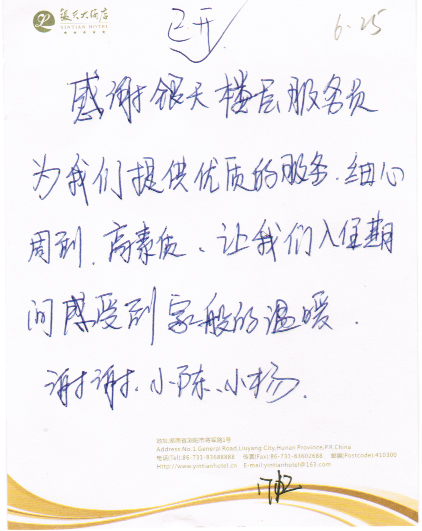 银天大酒店
YINTIAN HOTEL
已开
6-25
感谢银天楼层服务员
为我们提供优质的服务.细心
周到、高素质、让我们入住期
间感受到家般的温暖.
谢谢.小陈、小杨.
地址:湖南省浏阳市将军路1号
Address:No.1,General Road,Liuyang City,Hunan Province,P.R.China
电话(Tel):86-731-83688888 传真(Fax):86-731-83602688 邮编(Postcode):410300
Http://www.yintianhotel.cn E-mail:yintianhotel@163.com